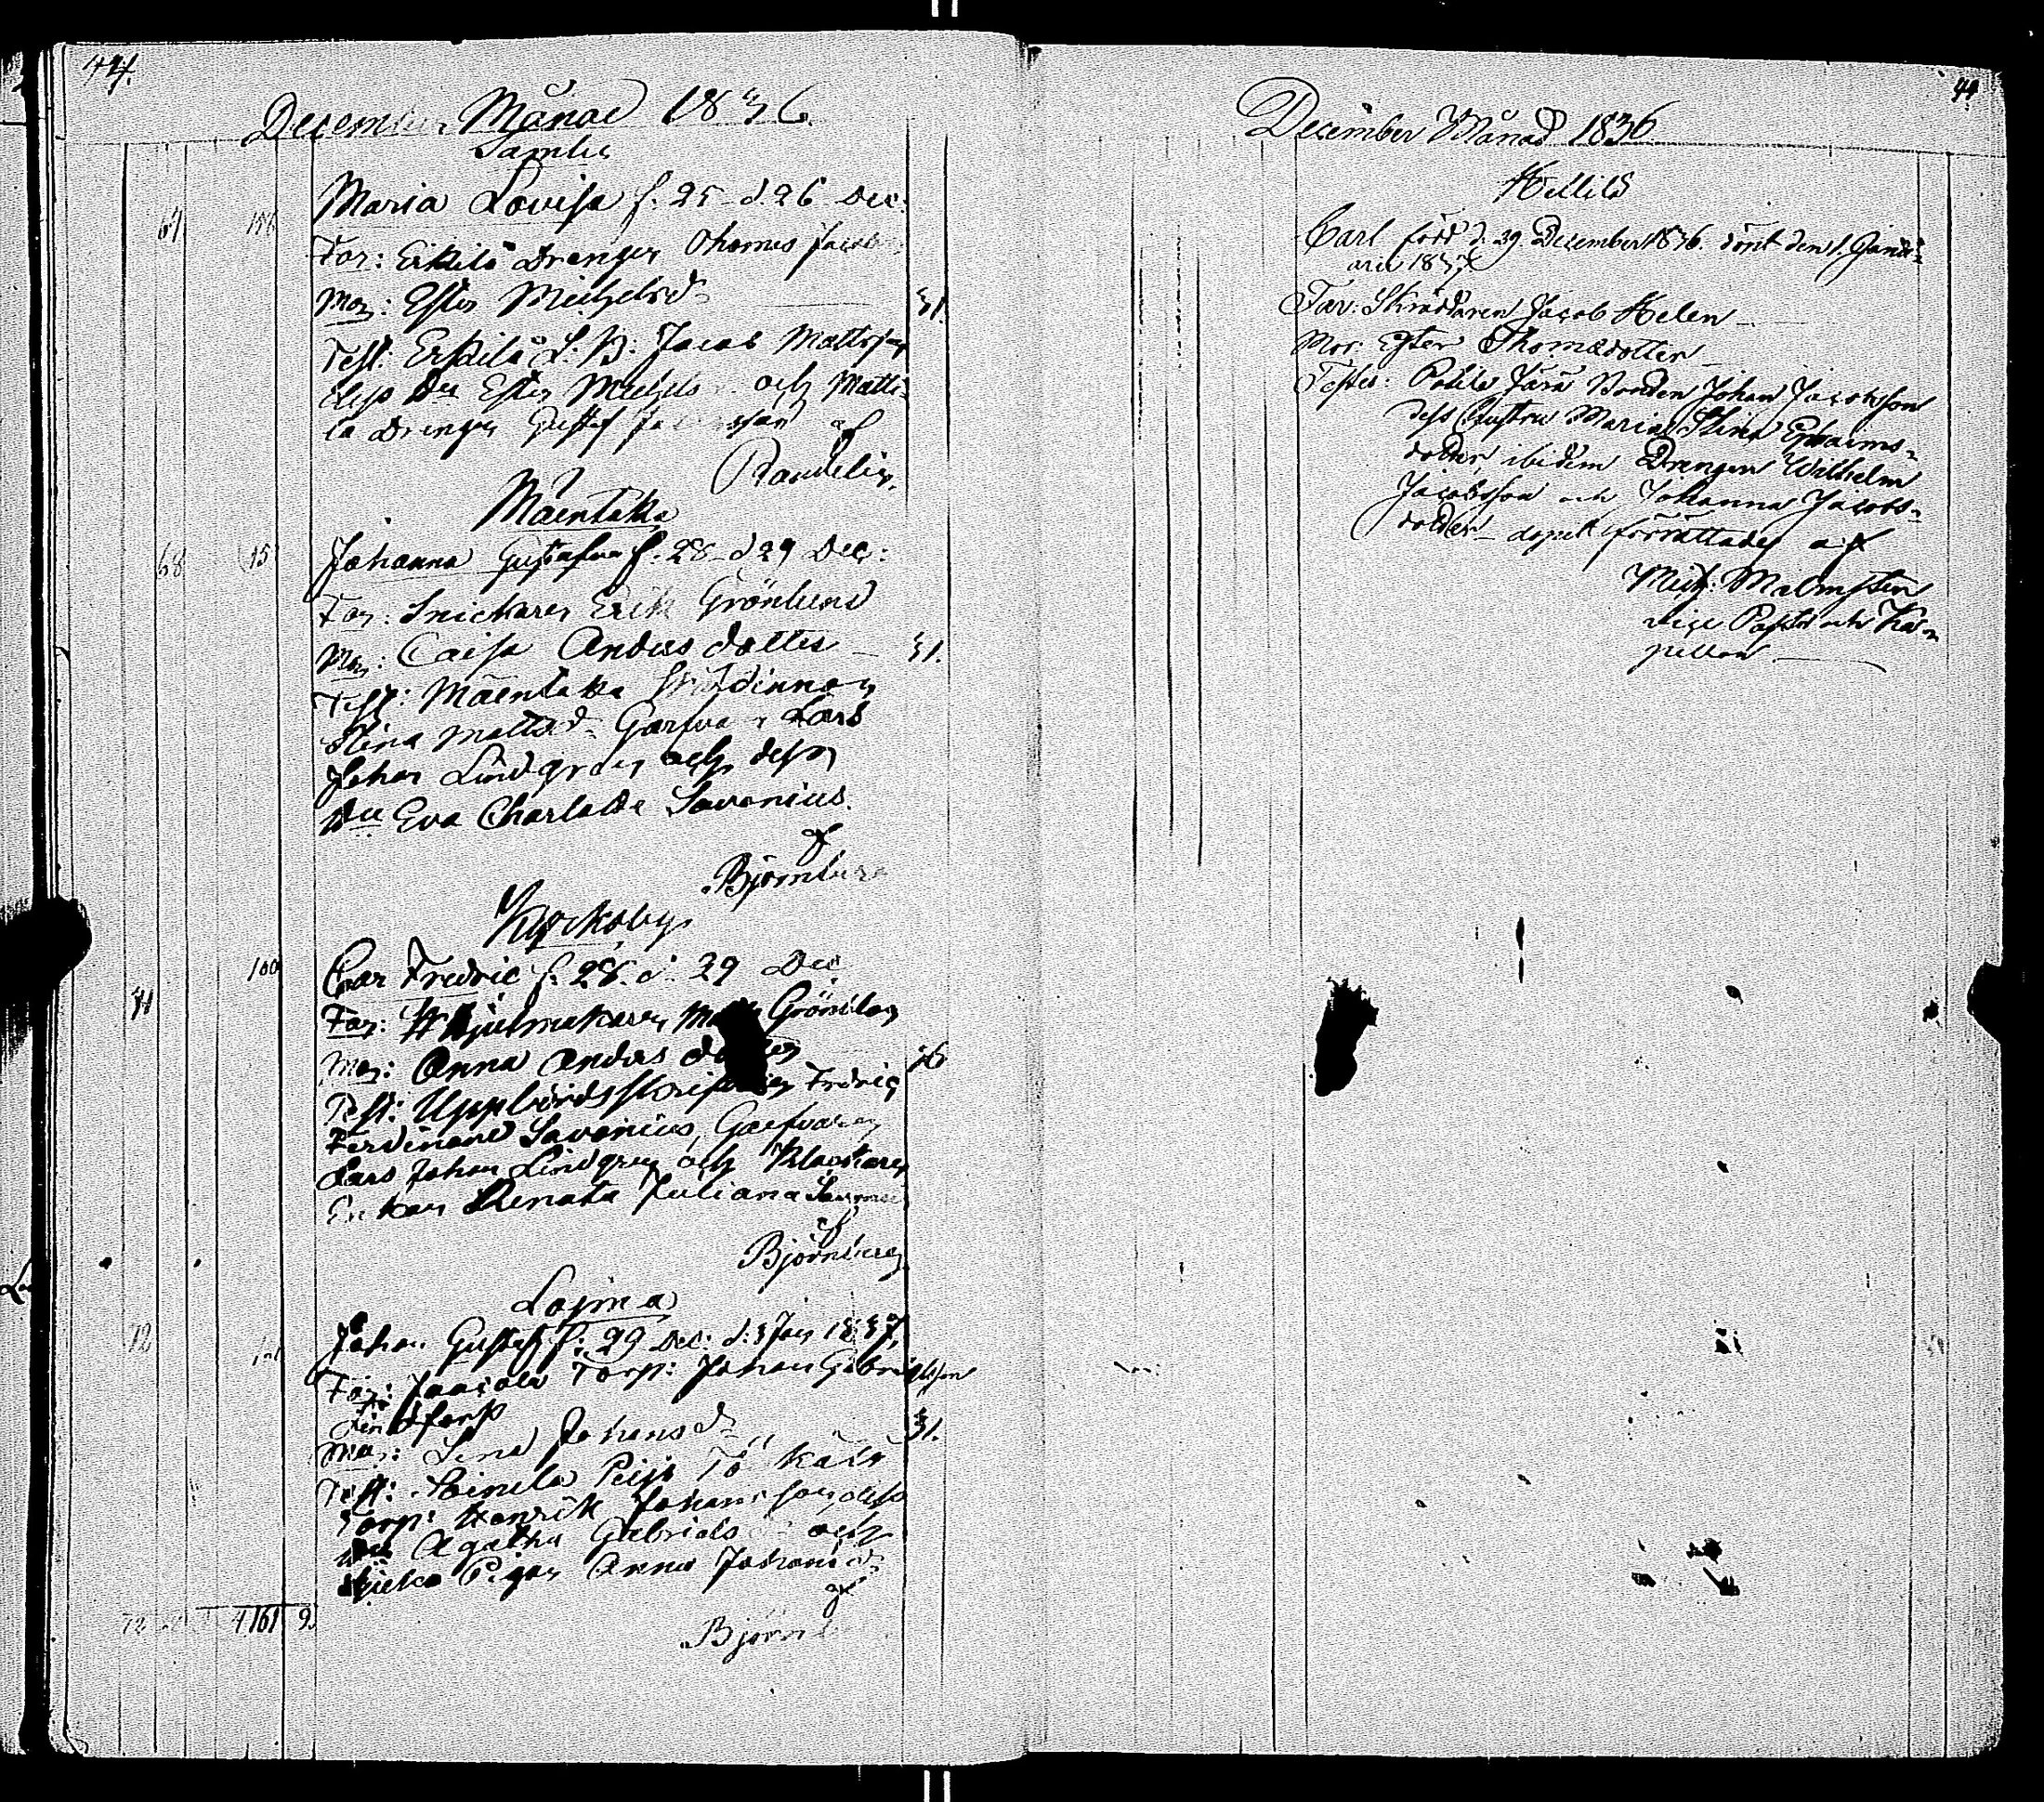 44.
December Månad 1836.
Samlis
Maria Lovisa f. 25 d. 26 Dec:
Far: Erkilä Drengen Thomas Jacob
Mor: Ester Michelsd:r
31.
Test: Erkilä L: B: Jacob Mattsson
dess Hu Ester Michels och Matti-
la Drengen Gustaf af
Randelin.
Mäentaka
68 15
Johanna Gustafva f. 28 d 29 Dec:
Far: Snickaren Erik Grönlund
Mor: Caisa Anders dotter 31.
Test: Mäentaka
Stina Mattsd:r Garfvaren Lars
Johan Lindgren och dess
Hu Eva Charlotta Savonius.
af
Björnberg
Kyrkoby
100
Carl Fredric f. 28. d. 29 Dec
71
Far: Hjulmakaren Grönlon
Mor: Anna Anders dotter
Test: Uppbördsskrifvaren Fredric
Ferdinand Savonius, Garfvaren
Lars Johan Lindgren och Klockare
Enkan Renata Juliana
af
Björnberg
Lojma
72
Johan Gustaf f: 29 Dec: d: 3 Jan 1837.
Far: Jaacola Torp: Johan Gabrielsson
Mor: Lena Johansd:r 31.
Test: Peijo
Torp: Henrik Johansson, dess
Hu Agatha Gabriels och
Pigan Anna Johansd:r
af
72 4 161 9
Björnb
44.
December Månad 1836
Hellilä
Carl född d. 29 December 1836. döpt den 1. Janu-
arii 1837
Far: Skräddaren Jacob Helen
Mor: Ester Thomasdotter
Testes: Potila Jara Bonden Johan Jacobsson
dess Hustru Maria Stina Ephraims-
dotter, ibidem Drengen Wilhelm
Jacobsson och Johanna Jacobs-
dotter - dopet förrättades af
Mich: Malmsten
vice Pastor och Ka-
pellan